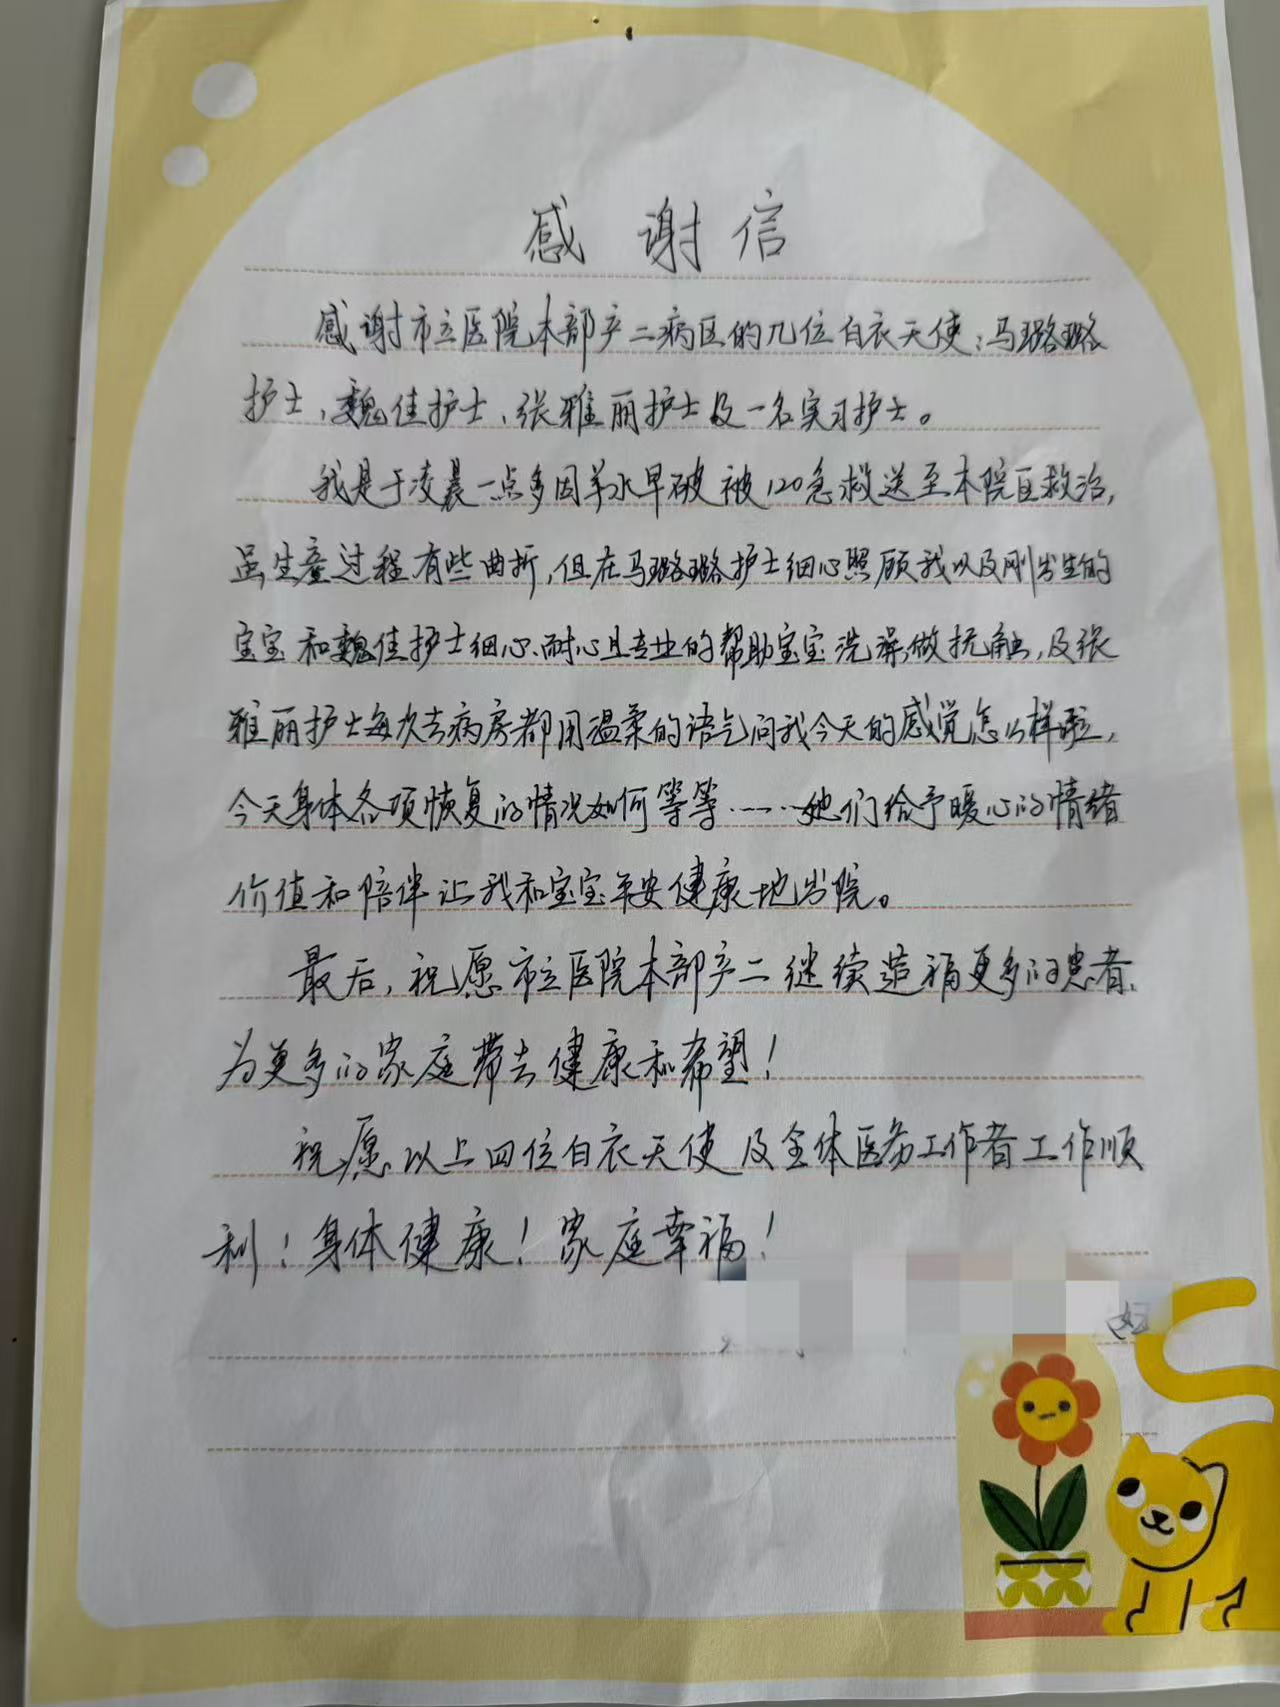 感谢信
感谢市立医院本部产二病区的几位白衣天使:马璐璐
护士、魏佳护士、张雅丽护士及一名实习护士。
我是于凌晨一点多因羊水早破被120急救送至本院区救治,
虽生产过程有些曲折,但在马璐璐护士细心照顾我以及刚出生的
宝宝和魏佳护士细心、耐心且专业的帮助宝宝洗澡、做抚触,及张
雅丽护士每次去病房都用温柔的语气问我今天的感觉怎么样啦,
今天身体各项恢复的情况如何等等……她们给予暖心的情绪
价值和陪伴让我和宝宝平安健康地出院。
最后,祝愿市立医院本部产二继续造福更多的患者,
为更多的家庭带去健康和希望!
祝愿以上四位白衣天使及全体医务工作者工作顺
利!身体健康!家庭幸福!